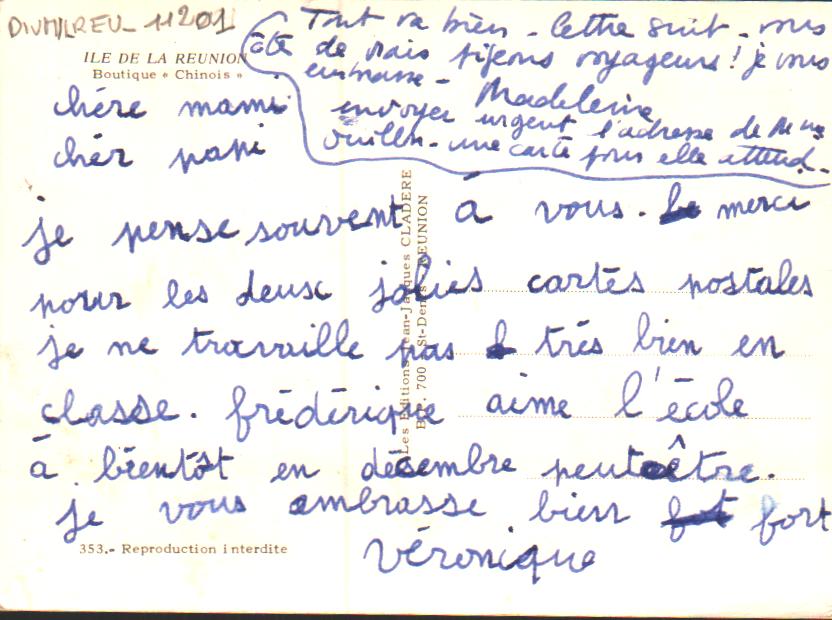 DIVMLREU - 11201
ILE DE LA REUNION
Boutique « Chinois »
Tout va bien - lettre suit - vous
de vrais pigeons voyageurs ! je vous
embrasse -
Madeleine
envoyer urgent l'adresse de Mme
- une carte pour elle attend -
chére mami
chér papi
je pense souvent à vous. merci
pour les deux jolies cartes postales
je ne travaille pas trés bien en
classe. frédérique aime l'école
à bientôt en décembre peut être.
je vous ambrasse bien fort
véronique
Les Editions Jean-Jacques CLADERE
B.P. 700 St-Denis REUNION
353.- Reproduction interdite